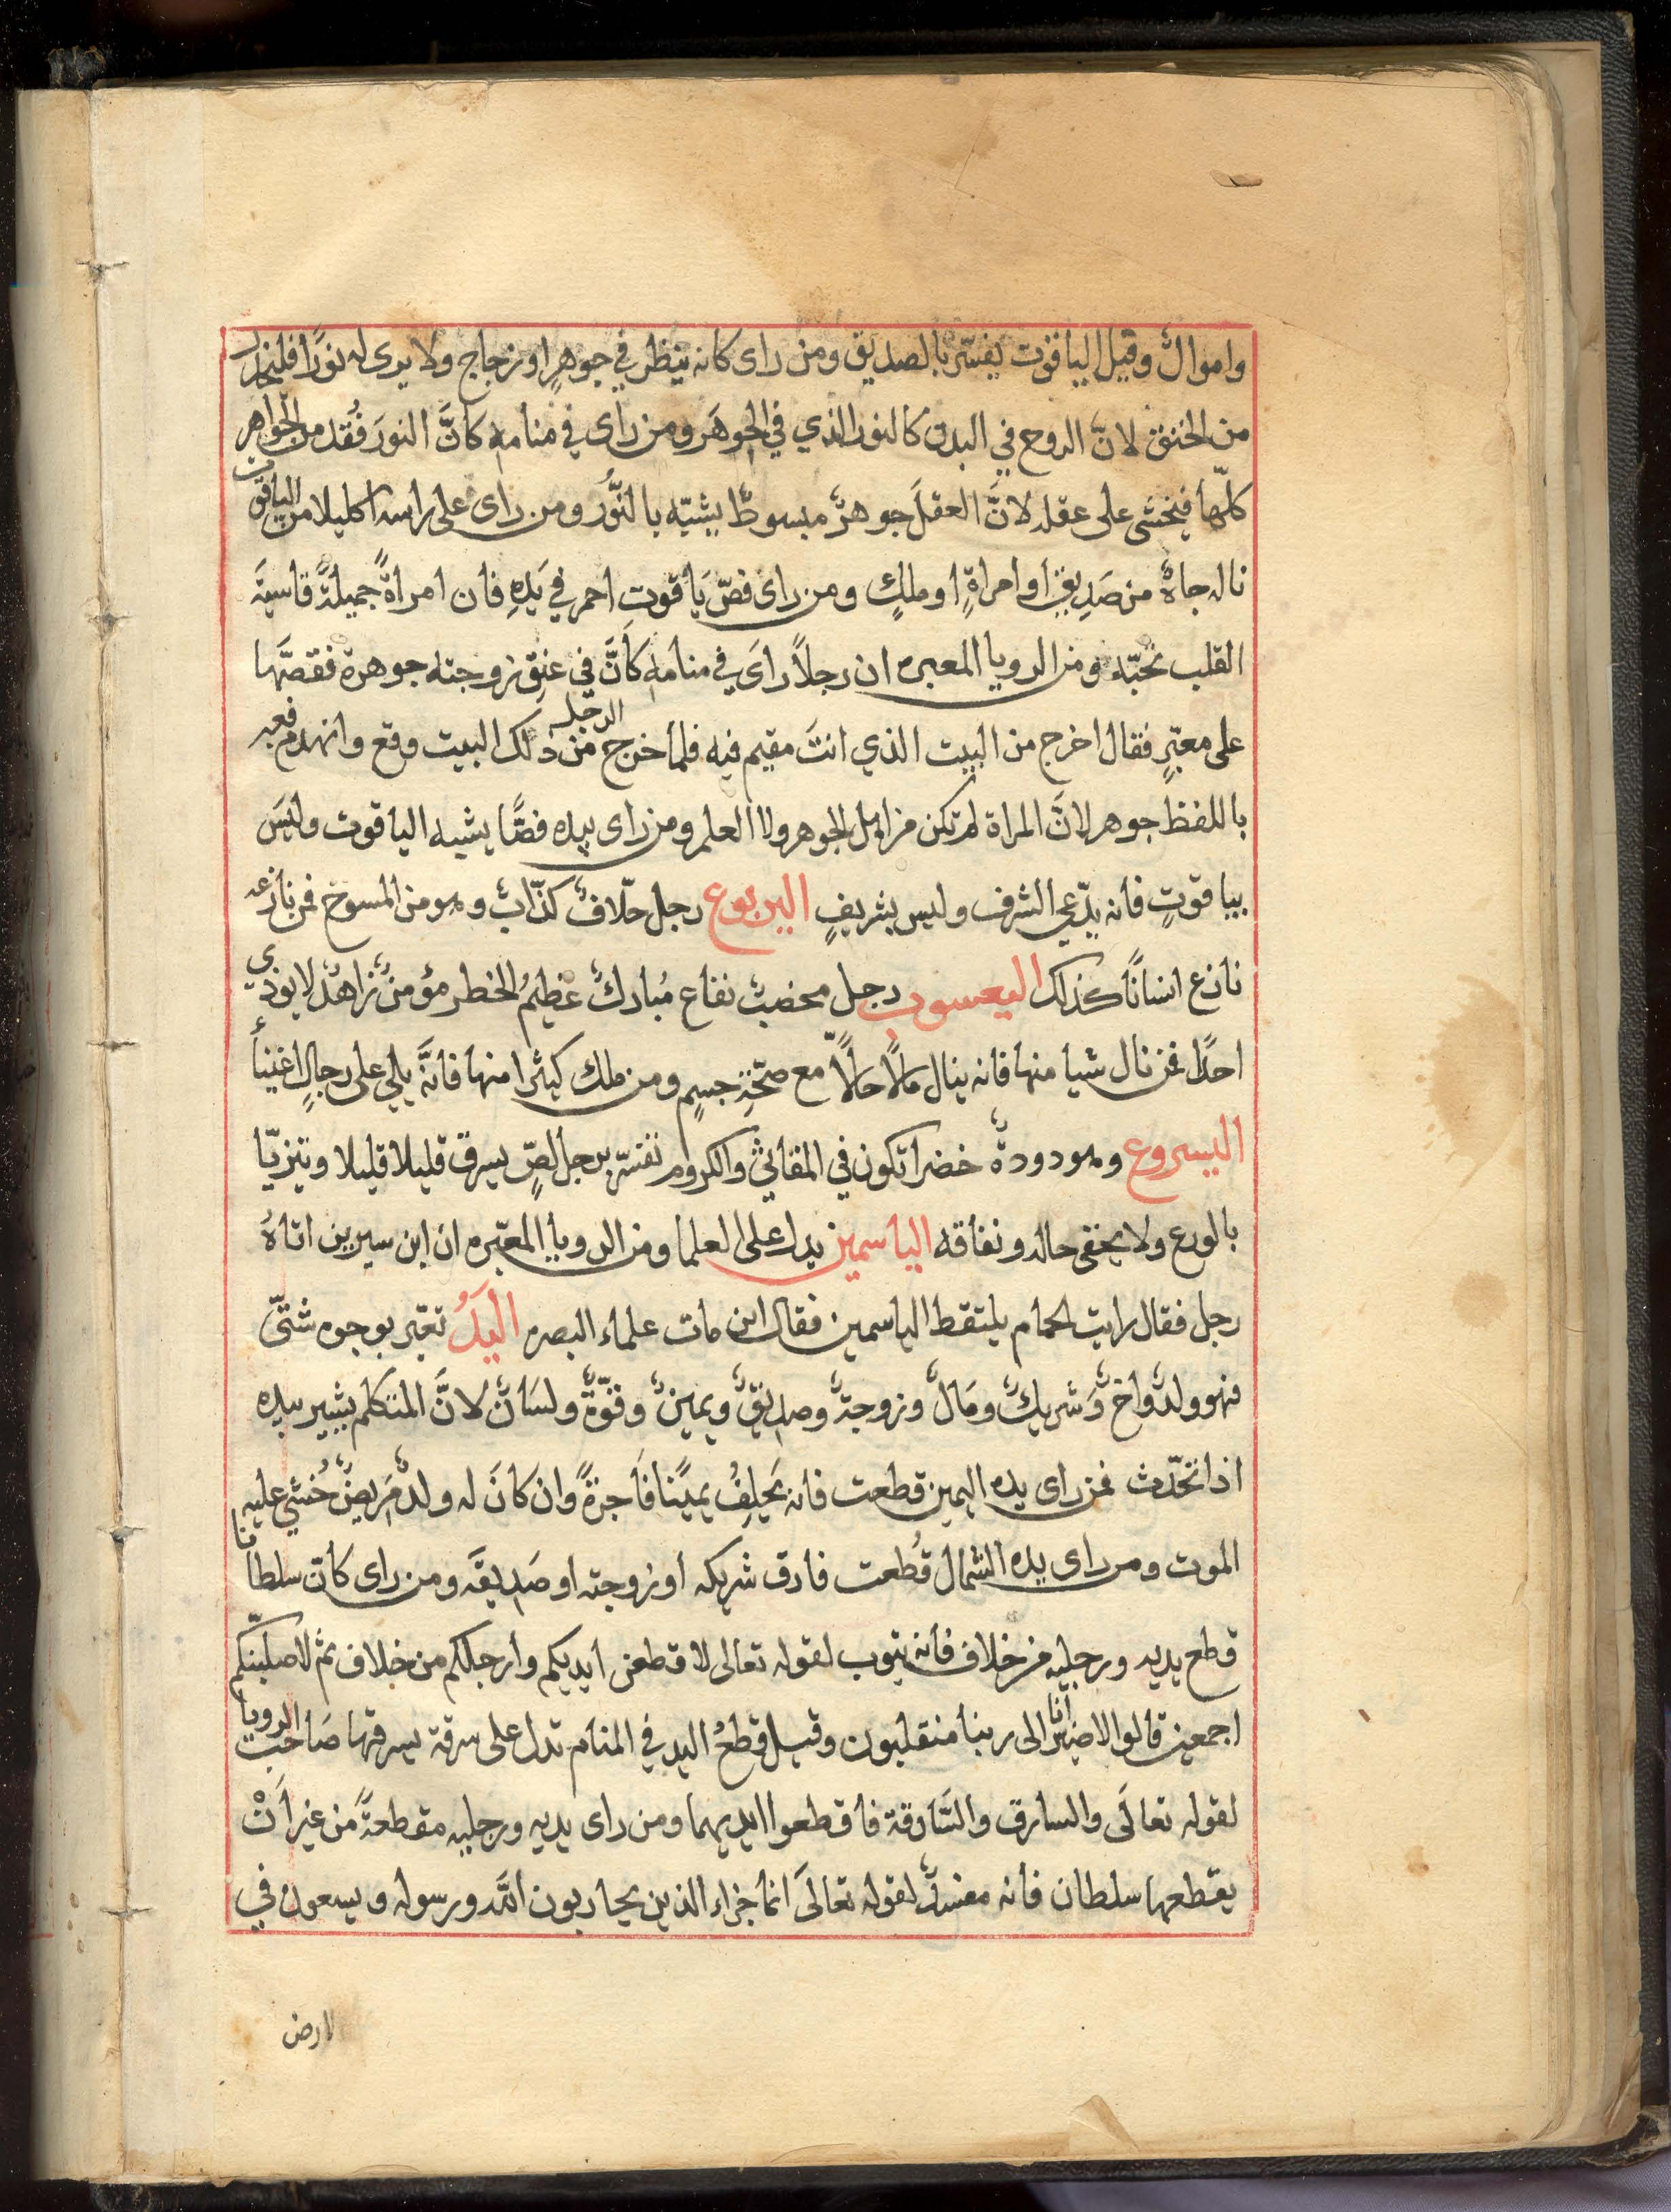 واموالٌ وقيل الياقوت يفسّر بالصديق ومن راى كانه ينظر في جوهرٍ او زجاج ولا يرى له نورًا فليحذر
من الخنق لانَّ الروح في البدن كالنور الذي في الجوهَر ومن راى في منامه كانَّ النورَ فُقد من الجواهر
كلّها فيخشى على عقله لانَّ العقلَ جوهرٌ مبسوطٌ يشبّه بالنُّور ومن راى على راسه اكليلا من الياقوت
ناله جاهٌ من صَدِيقٍ او امراةٍ او ملكٍ ومن راى فصّ يَاقوتٍ احمر في يَدِهِ فان امراةً جميلةً قاسيةَ
القلب تحبّه ومن الرويا المعبره ان رجلاً راىَ في منامه كَانَّ في عنق زوجته جوهرة فقصّها
على معبّرٍ فقال اخرج من البيت الذي انتَ مقيم فيه فلما خرج الرجل من ذلك البيت وقع وانهدم فعبر
باللفظ جوهر لانَّ المراة لم تكن من اهل الجوهر ولا العلم ومن راى بيده فصًّا يشبه الياقوت وليسَ
بياقوتٍ فانه يدّعي الشرف وليس بشريفٍ اليربوع رجل حلّافٌ كذّابٌ وهو من المسوخ فمن نازعه
نازع انسانًا كذلك اليعسوب رجل مخصب نفاع مُبارك عظيمُ الخطر مؤمنٌ زاهدٌ لا يوذي
احدًا فمن نال شيا منها فانه ينال مالًا حلالاً مع صحّةِ جسمٍ ومن ملك كثيرا منها فانَّه يلي على رجالٍ اغنياء
اليسروع وهو دودةٌ خضرا تكون في المقاثي والكروم تفسّر برجل لصٍّ يسرق قليلا قليلا ويتزيّا
بالورع ولا يخفى حاله ونفاقه الياسمين يدل على العلما ومن الرويا المعبّره ان ابن سيرين اتاهُ
رجل فقال رايت الحمام يلتقط الياسمين فقال ابن مات علماء البصره اليَدُ تعبّر بوجوه شتّى
فهو ولدٌ واخٌ وَشريكٌ ومَالٌ وزوجةٌ وصديقٌ ويمينٌ وقوّةٌ ولسَانٌ لانَّ المتكلم يشير بيده
اذا تحدّث فمن راى يده اليمين قطعت فانه يَحلِفُ يمينًا فَاجرَةً وان كانَ له ولدٌ مَريضٌ خُشي عليه
الموت ومن راى يده الشمال قُطعت فارق شريكه او زوجته او صَديقَه ومن راى كان سلطانا
قطع يديه ورجليه من خلاف فانه يتوب لقوله تعالى لاقطعن ايديكم وارجلكم من خلاف ثم لاصلبنّكم
اجمعين قالوا لاضير انا الى ربنا منقلبون وقيل قطعُ اليد في المنام تدل على سرقة يسرقها صَاحب الرويا
لقوله تعالَى والسارق والسَّارقة فاقطعوا ايديهما ومن راى يديه ورجليه مقطعةً من غير اَنْ
يقطعها سلطان فانه مفسدٌ لقوله تعالَى انما جزاء الذين يحاربون اللَّه ورسوله ويسعون في
لارض